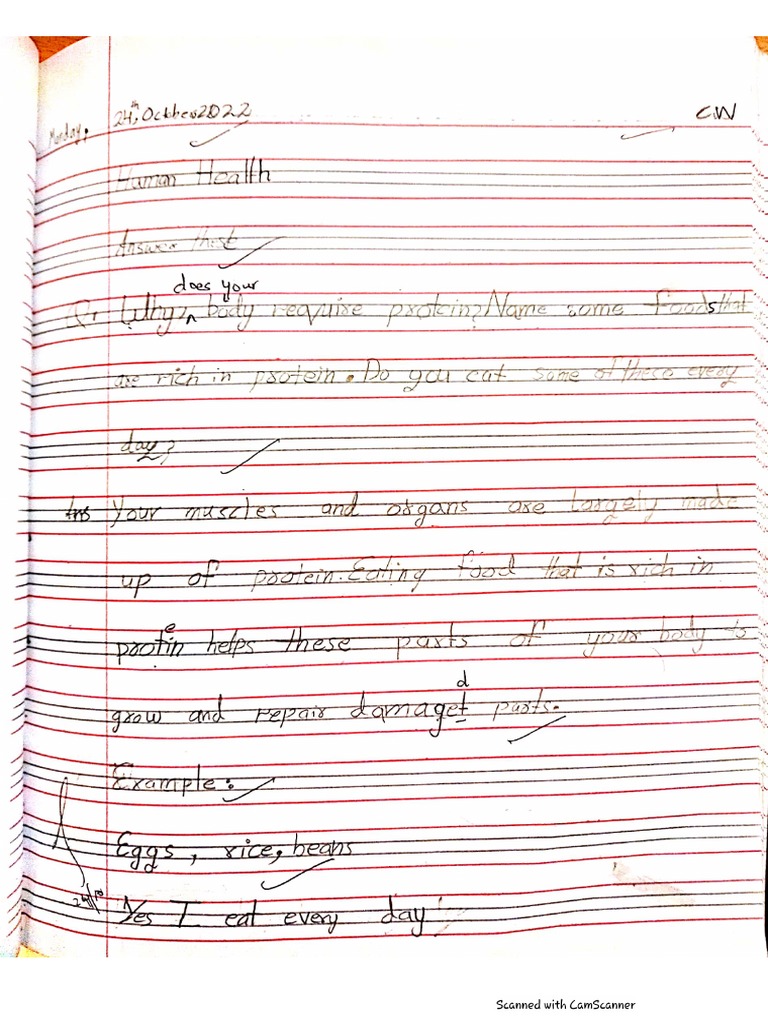 Monday, 24th, October 2022 CW
Human Health
Answer thise
Q1 Why? ^ does your body require protein? Name some foods that
are rich in protein. Do you eat some of these every
day?
Ans Your muscles and organs are largely made
up of protein. Eating food that is rich in
protein helps these parts of your body to
grow and repair damaget d parts.
Example:
Eggs, rice, beans
24/10
Yes I eat every day
Scanned with CamScanner